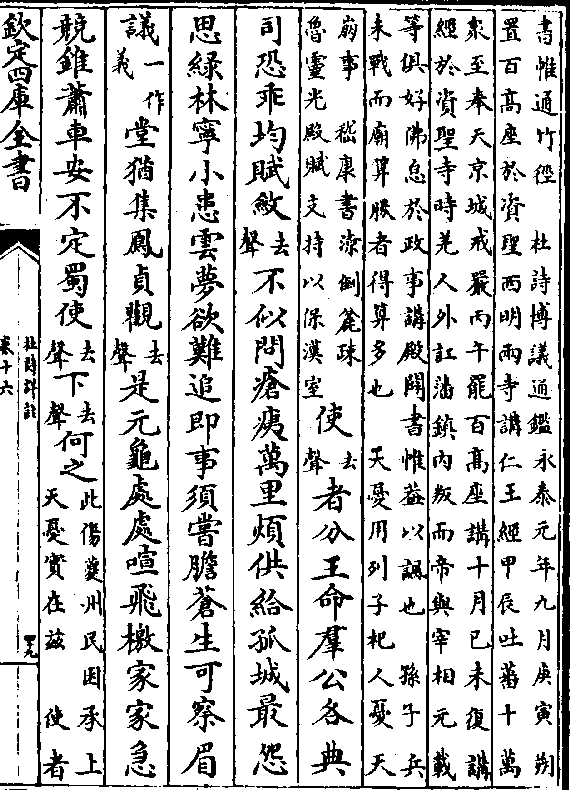 書惟通竹徑 杜詩博議通鑑永泰元年九月庚寅朔
置百髙座於資聖西明兩寺講仁王經甲辰吐蕃十萬
衆至奉天京城戒嚴丙午罷百髙座講十月已未復講
經於資聖寺時羌人外訌藩鎮内叛而帝與宰相元載
等俱好佛怠於政事講殿闢書惟益以諷也 孫子兵
未戰而廟算勝者得算多也 天憂用列子杞人憂天
崩事 嵇康書潦倒麄疎
魯靈光殿賦支持以保漢室
使去聲者分王命羣公各典
司恐乖均賦斂去聲不似問瘡痍萬里煩供給孤城最怨
思緑林寧小患雲夢欲難追即事須嘗膽蒼生可察眉
議一作義堂猶集鳳貞觀去聲是元龜處處喧飛檄家家急
競錐蕭車安不定蜀使去聲下去聲何之
此傷夔州民困承上
天憂實在兹 使者
欽定四庫全書
杜詩詳註
卷十六